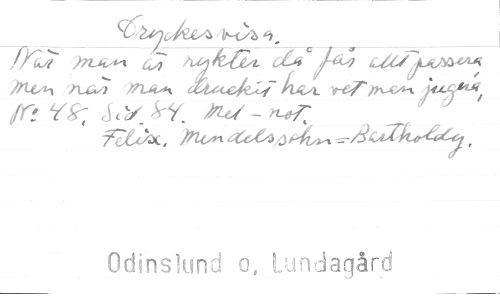 Dryckesvisa.
När man är nykter då får allt passera
men när man druckit har vet man jugera,
No 48. Sid. 84. Mel-not.
Felix. Mendelssohn=Bartholdy.
Odinslund o, Lundagård